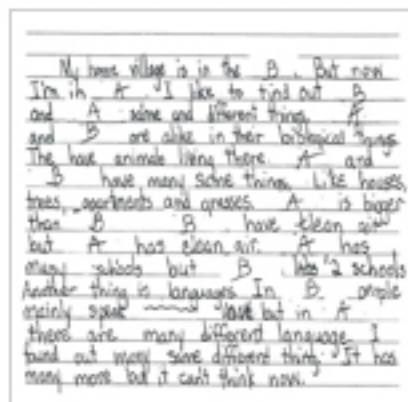 My home village is in the B. But now
I'm in A. I like to find out B
and A same and different things. A
and B are alike in their biological things
The have animals living there. A and
B have many same things. Like houses,
trees, apartments and grasses. A is bigger
than B. B have clean air
but A has clean air. A has
many schools but B has 2 schools
Another thing is languages. In B people
mainly speak but in A
there are many different language I
found out many same different thing. It has
many more but it can't think now.